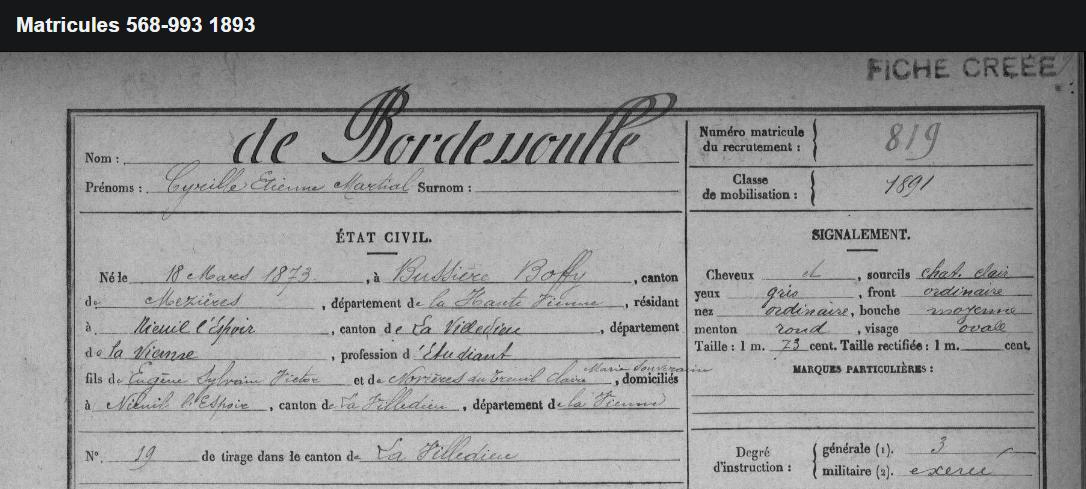 Matricules 568-993 1893
FICHE CRÉÉE
Nom : de Bordessoulle
Prénoms : Cyrille Etienne Martial Surnom :
Numéro matricule
du recrutement : 819
Classe
de mobilisation : 1891
ÉTAT CIVIL.
Né le 18 Mars 1873, à Bussière Boffy, canton
de Mezières, département de la Haute Vienne, résidant
à Nieuil l'Espoir, canton de La Villedieu, département
de la Vienne, profession d'Etudiant
fils de Eugène Sylvain Victor et de Claire Marie Souveraine, domiciliés
à Nieuil l'Espoir, canton de La Villedieu, département de la Vienne
N° 19 de tirage dans le canton de La Villedieu
SIGNALEMENT.
Cheveux et, sourcils chat. clair
yeux gris, front ordinaire
nez ordinaire, bouche moyenne
menton rond, visage ovale
Taille : 1 m. 73 cent. Taille rectifiée : 1 m. cent.
MARQUES PARTICULIÈRES :
Degré
d'instruction :
générale (1). 3
militaire (2). exercé